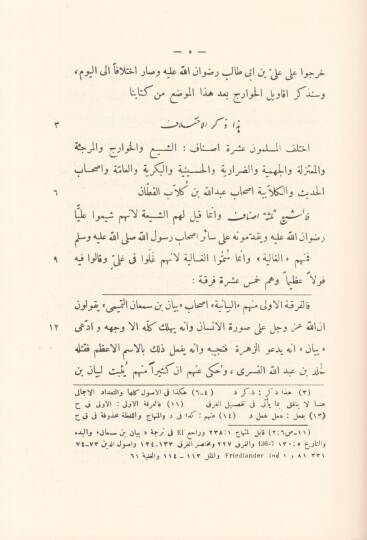 — ٥ —
خرجوا على علىّ بن ابى طالب رضوان الله عليه وصار اختلافاً الى اليوم،
وسنذكر اقاويل الخوارج بعد هذا الموضع من كتابنا
٣ هذا ذكر الاختلاف
اختلف المسلمون عشرة اصناف : الشيع والخوارج والمرجئة
والمعتزلة والجهمية والضرارية والحسينية والبكرية والعامّة واصحاب
٦ الحديث والكلّابية اصحاب عبدالله بن كُلّاب القطّان
فالشيع ثلثة اصناف وانما قيل لهم الشيعة لانهم شيعوا عليًّا
رضوان الله عليه ويقدّمونه على سائر اصحاب رسول الله صلى الله عليه وسلم
٩ فمنهم « الغالية » وانما سُمّوا الغالية لانهم غلَوا فى علىّ وقالوا فيه
قولاً عظيماً وهم خمس عشرة فرقة :
فالفرقة الاولى منهم «البيانية» اصحاب «بيان بن سمعان التميمى» يقولون
١٢ ان الله عز وجل على صورة الانسان وانه يهلك كلّه الا وجهه وادّعى
« بيان » انه يدعو الزهرة فتجيبه وانه يفعل ذلك بالاسم الاعظم فقتله
خالد بن عبد الله القسرى، وحُكى عنهم ان كثيراً منهم يُثبت لبيان بن
(٣) هذا ذكر : ذكر د (٤-٦) هكذا فى الاصول كلها والتعداد الاجمالى
هنا لا يتفق بما يأتى فى تفصيل الفرق (١١) فالفرقة الاولى : الاولى ق ح
(١٣) يفعل : جعل د (١٤) منهم : كذا فى د والمنهاج واللفظة محذوفة فى ق ح
(١١-ص٦:٢) قابل المنهاج ١ : ٢٣٨ وراجع EI فى ترجمة « بيان بن سمعان» والبدء
والتاريخ ٥ : ١٣٠ 136-7 والفرق ٢٢٧ ومختصر الفرق ١٣٣-١٣٤ واصول الدين ٧٣-٧٤
٣٣١ و ٨١ Friedlander ind ١ والملل ١١٣ - ١١٤ والغنية ٦١